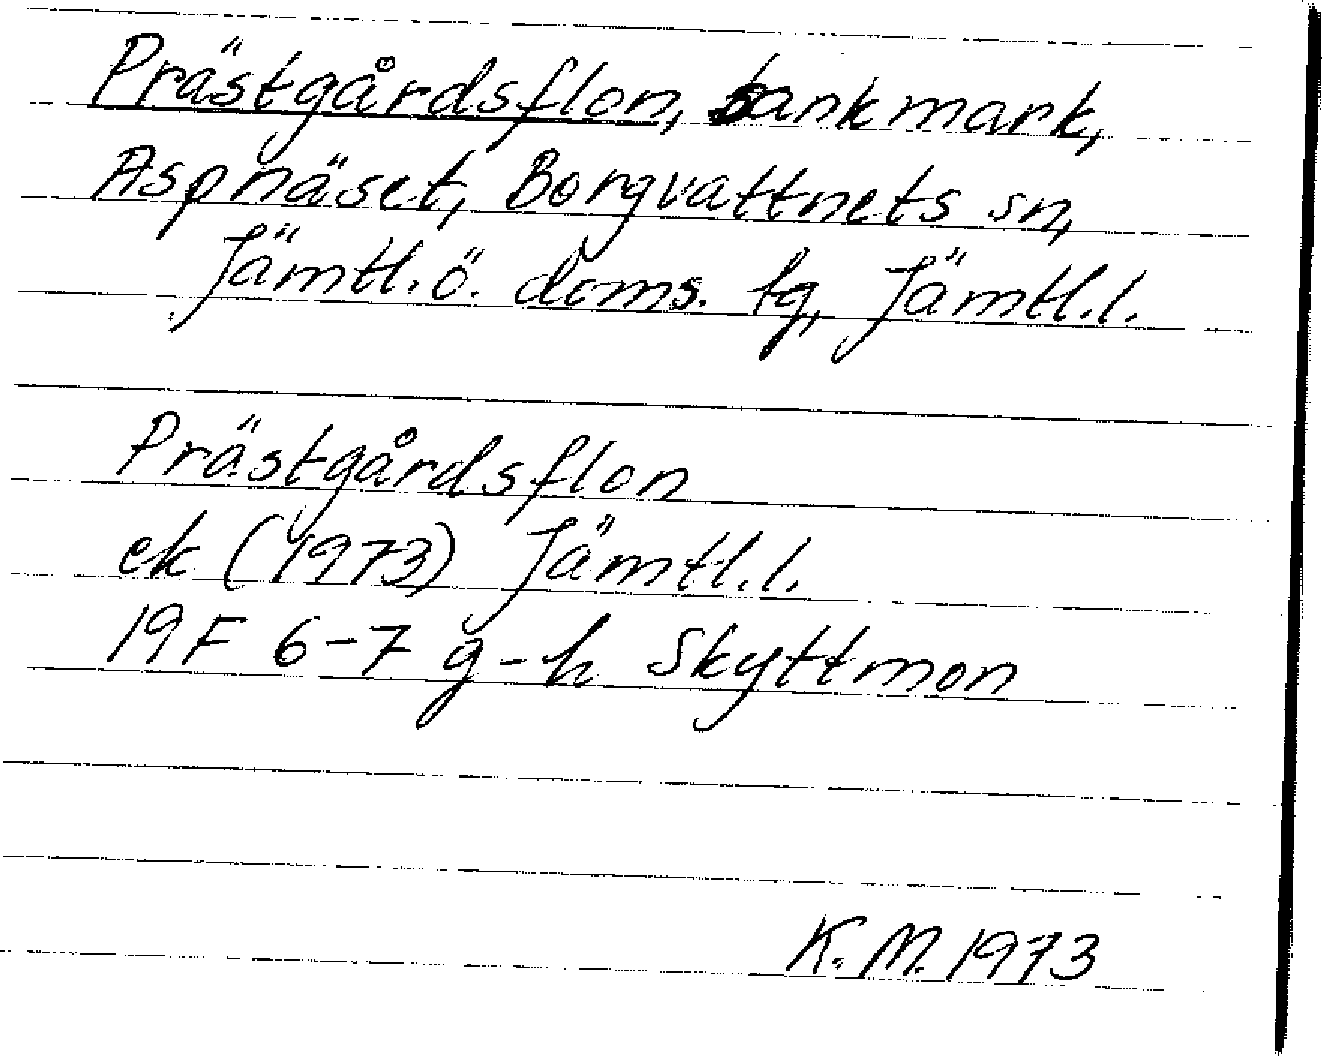 Prästgårdsflon, sankmark,
Aspnäset, Borgvattnets sn,
Jämtl.ö. doms. tg, Jämtl.l.
Prästgårdsflon
ek (1973) Jämtl.l.
19F 6-7 g-h Skyttmon
K.M. 1973